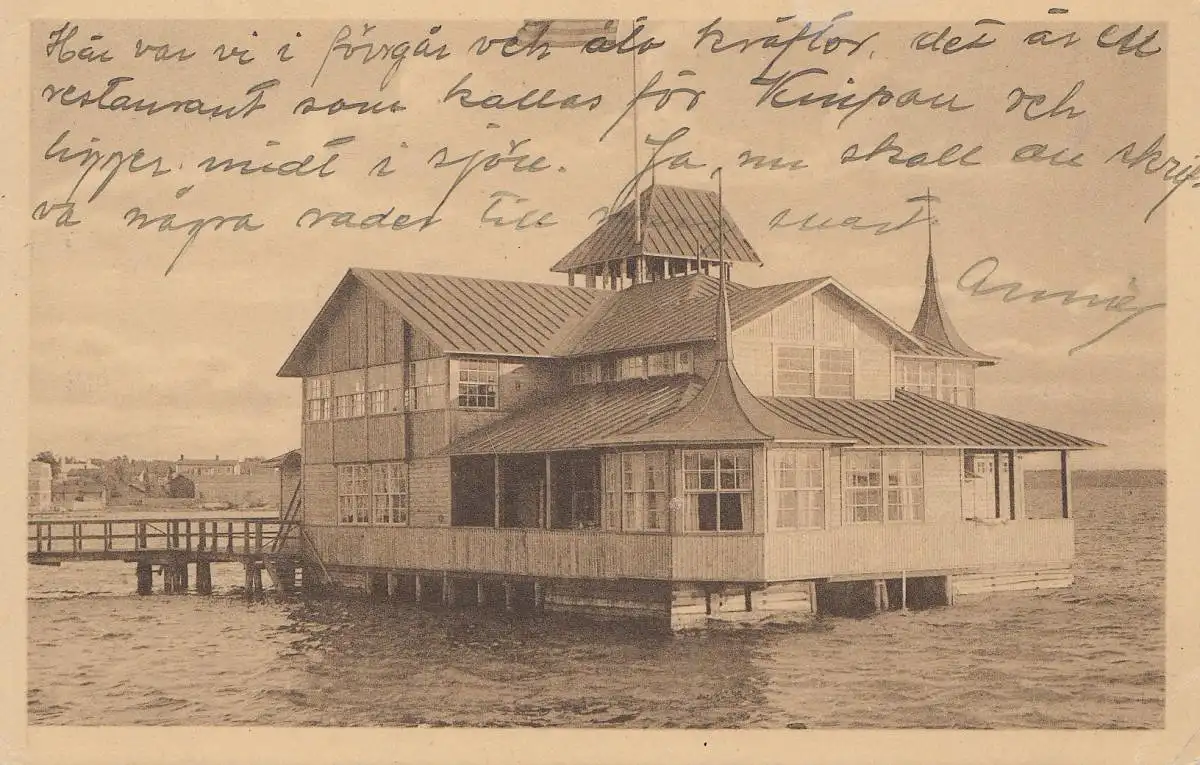 Här var vi i förrgår och åto kräftor, det är ett
restaurant som kallas för Kinpan och
ligger midt i sjön. Ja nu skall du skrif
va några rader till snart.
Annie